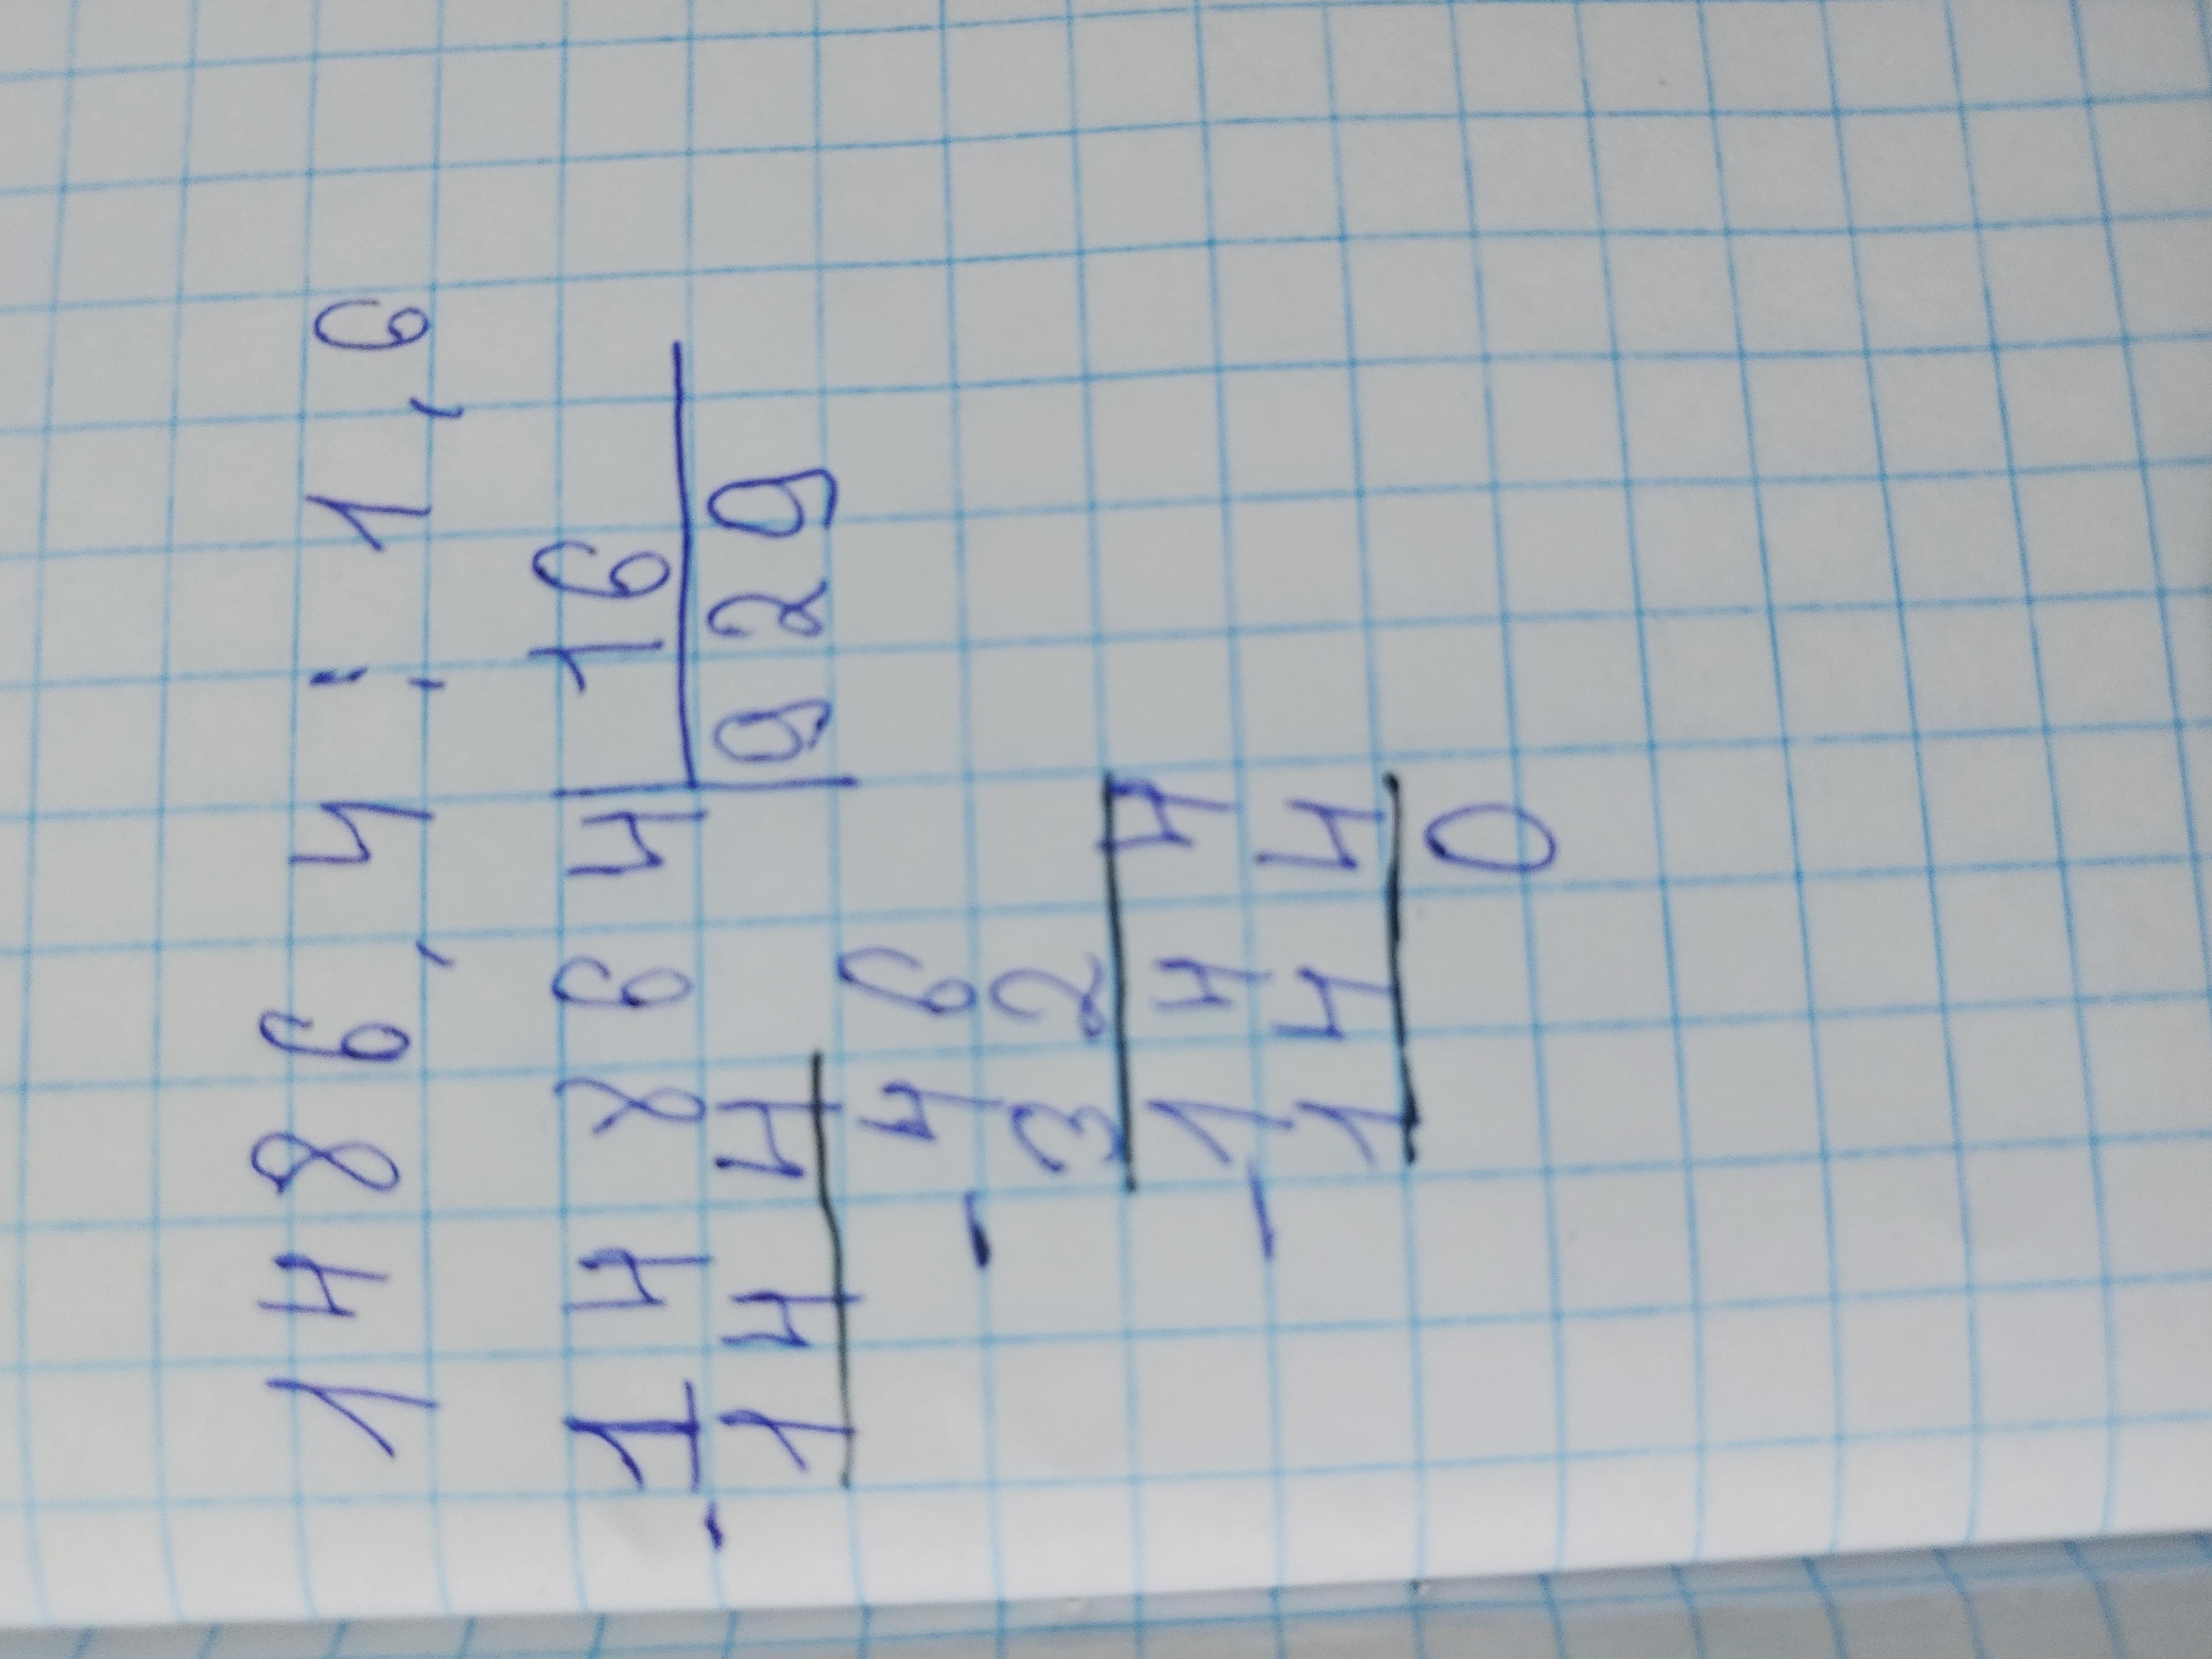 1486,4 : 1,6
14864 16
144 929
- 46
32
- 144
144
0